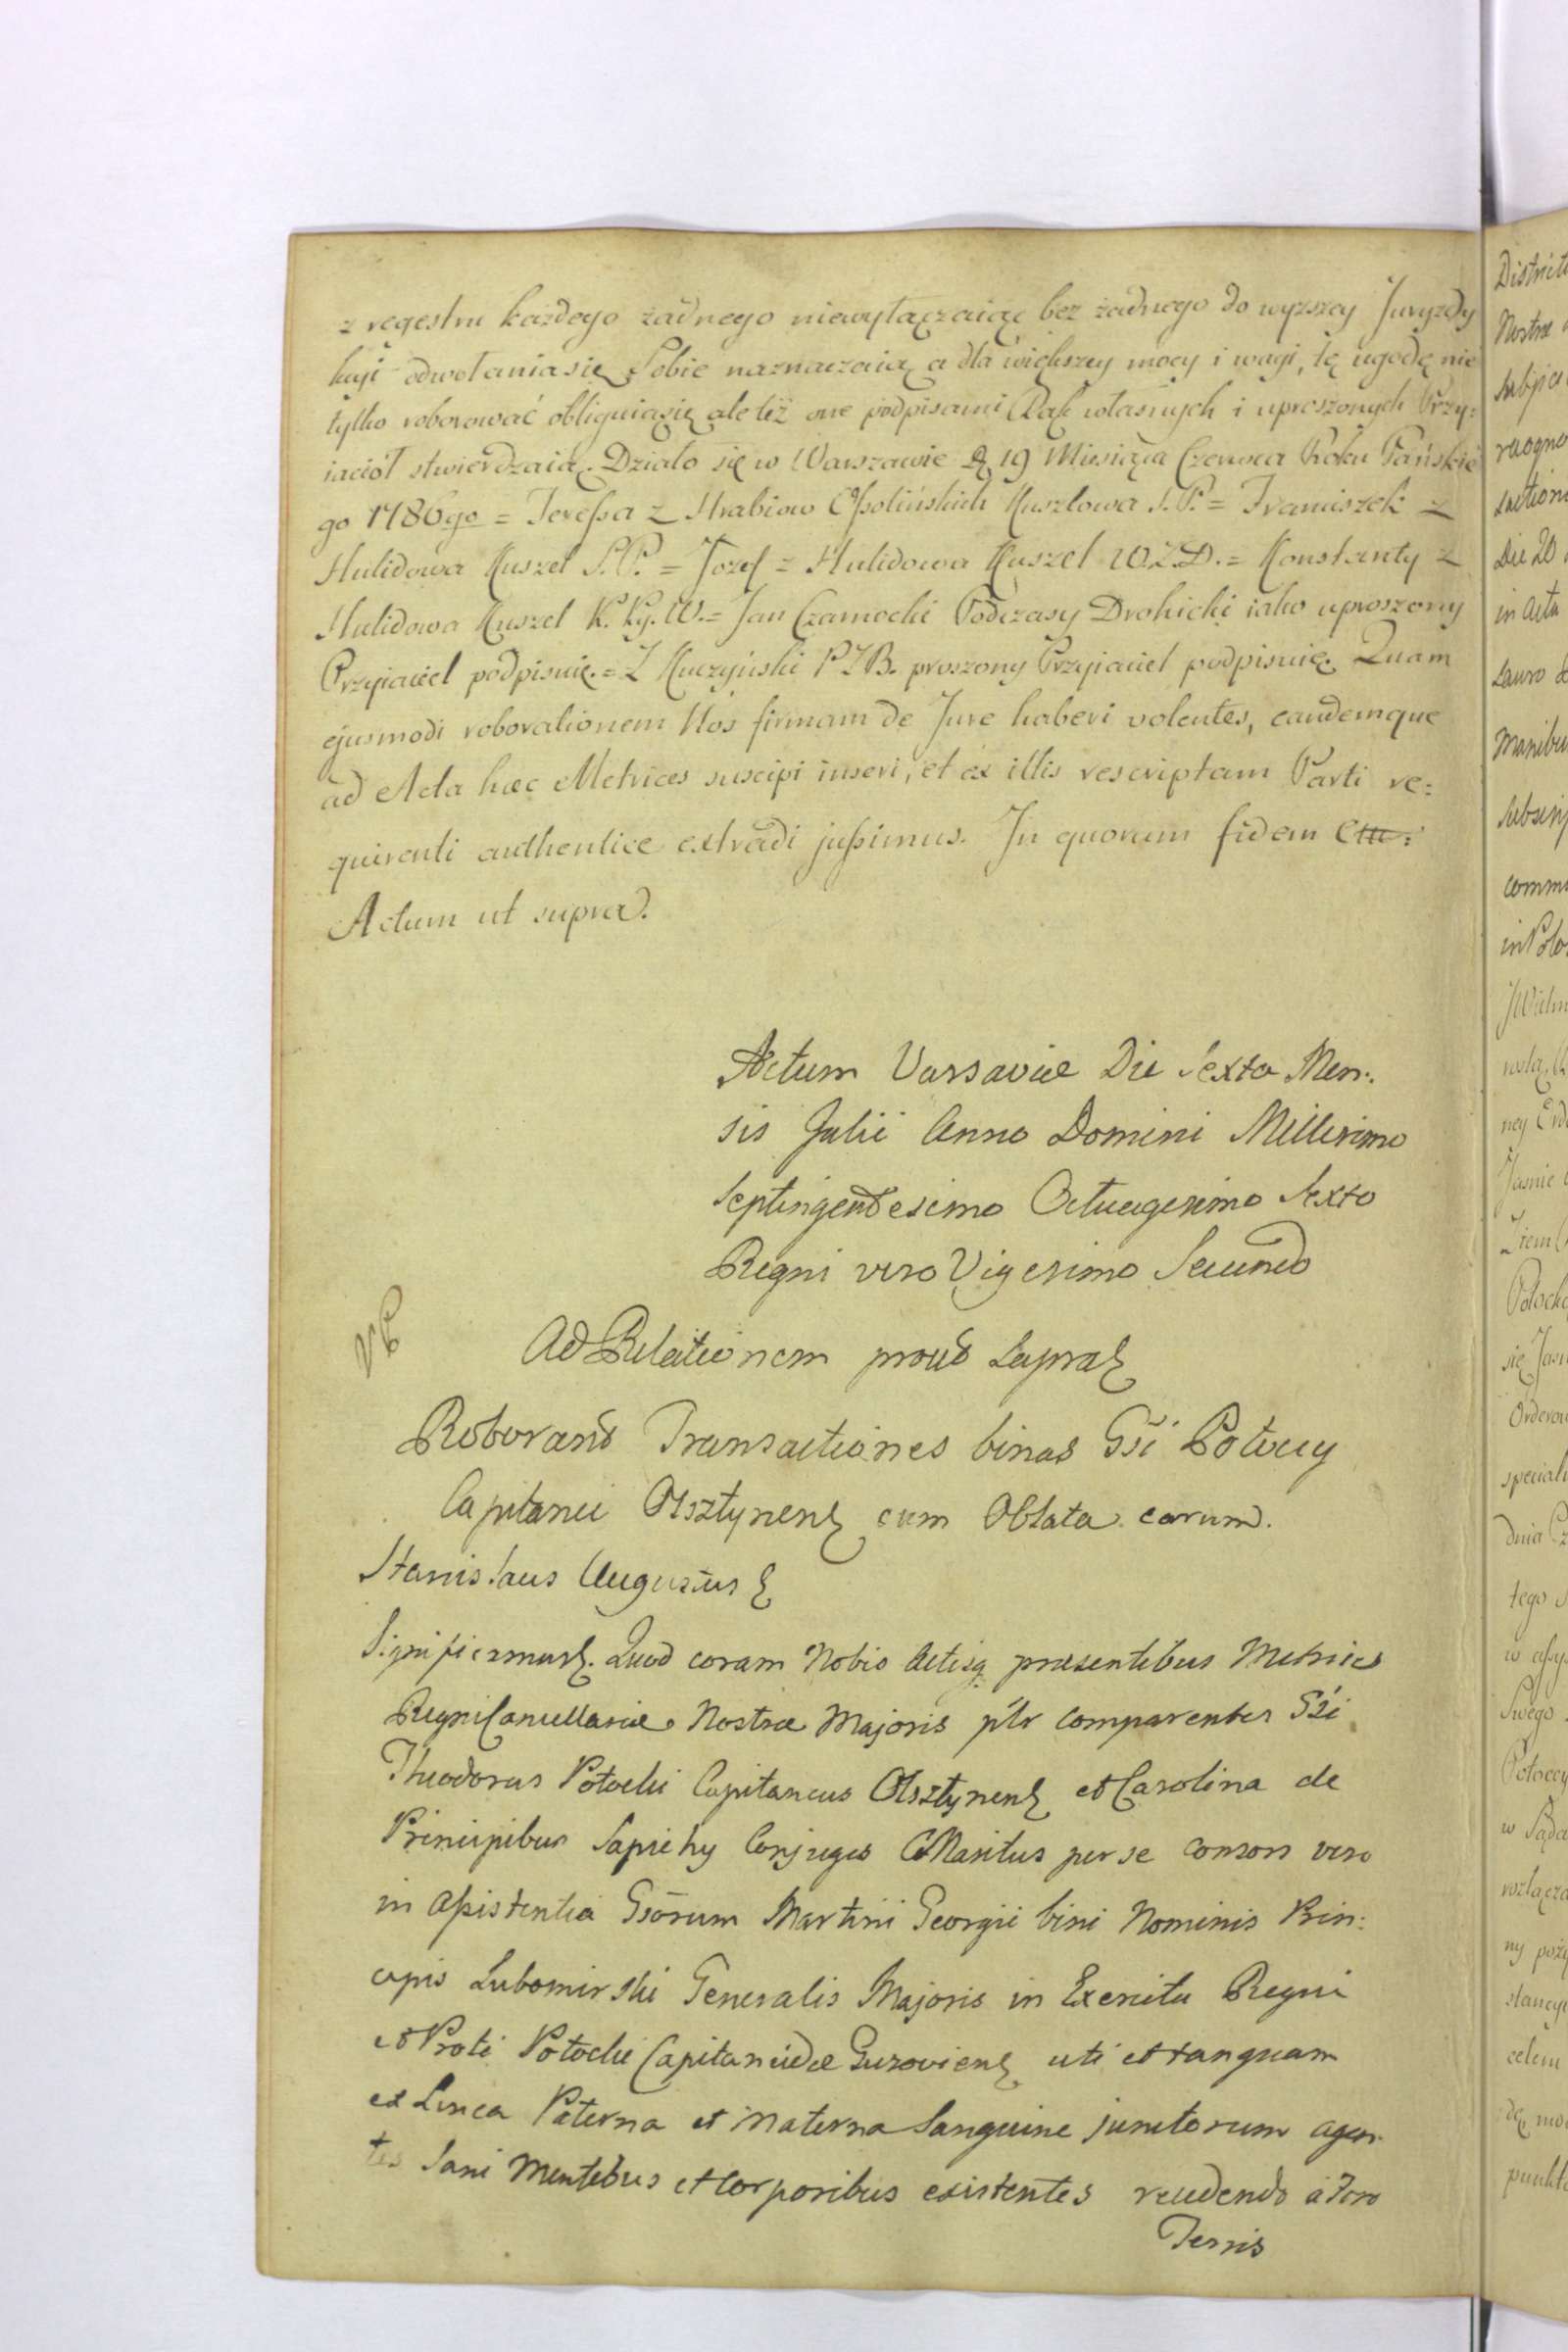 z regestru każdego żadnego niewyłączaiąc bez żadnego do wyższey Juryzdy
kcyi odwołania się Sobie naznaczaią a dla większey mocy i wagi, tę ugodę nie
tylko roborować obliguią się ale też one podpisami Rąk własnych i uproszonych Przy=
iaciół stwierdzaią. Działo się w Warszawie D. 19 Miesiąca Czerwca Roku Pańskie
go 1786go = Teressa z Hrabiow Ossolińskich Kuszlowa S.P. = Franciszek z
Hulidowa Kuszel S.P. = Jozef z Hulidowa Kuszel W.Z.D. = Konstanty z
Hulidowa Kuszel K. Kg. W. = Jan Czarnocki Podczasy Drohicki iako uproszony
Przyiaciel podpisuię. = Z Kuczyński PZB. proszony Przyiaciel podpisuię. Quam
ejusmodi roborationem Nos firmam de Jure haberi volentes, eandemque
ad Acta hæc Metrices suscipi inseri, et ex illis rescriptam Parti re=
quirenti authentice extradi jussimus. In quorum fidem
Actum ut supra.
Actum Varsaviæ Die Sexta Men:
sis Julii Anno Domini Millesimo
Septingentesimo Octuagesimo Sexto
Regni vero Vigesimo Secundo
Ad Relationem prout supra
Roborant Transactiones binas Gsi Potoccy
Capitanei Olsztynen cum Oblata earum.
Stanislaus Augustus
Significamus. Quod coram Nobis Actisq præsentibus Metrices
Regni Cancellariæ Nostræ Majoris plr comparentes Gsi
Theodorus Potocki Capitaneus Olsztynen et Carolina de
Principibus Sapiehy Conjuges Maritus per se consors vero
in assistentia Gsorum Martini Georgii bini Nominis Prin:
cipis Lubomirski Generalis Majoris in Exercitu Regni
et Proti Potocki Capitaneidæ Guzovien uti et tanquam
ex Linea Paterna et Materna Sanguine junctorum agen
tes Sani Mentibus et Corporibus existentes recedendo a Foro
Terris
District
Nostræ
Die 20
in Acta
Manibus
comm
Potocki
się
dnia
tego
w
Swego
Potoccy
w Sąda
ny
celem
punkta